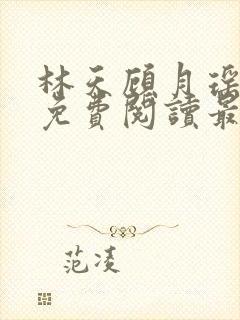 林天顾月瑶
免費閱讀最
范凌